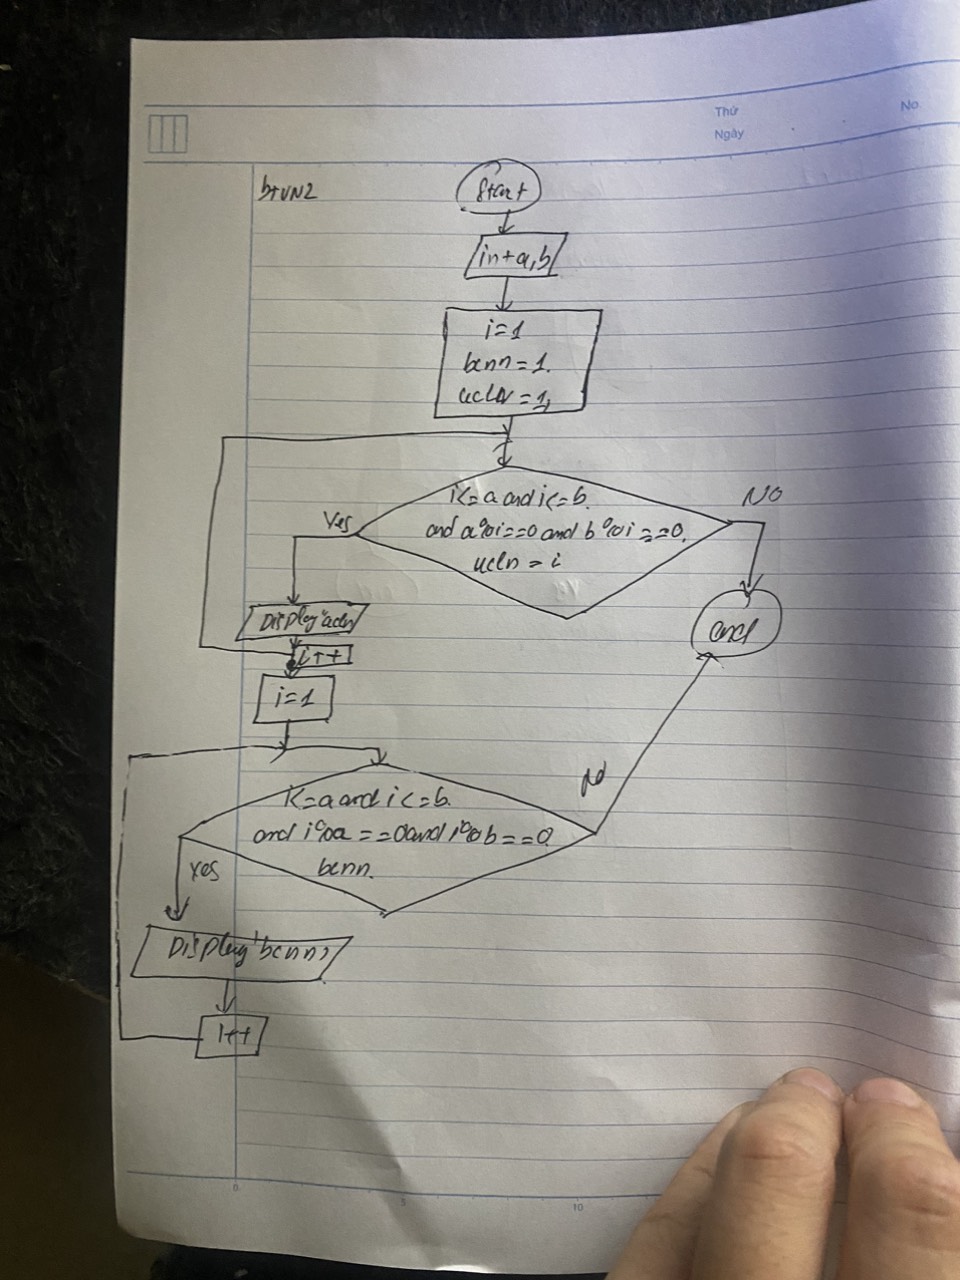 Thứ
No.
Ngày
btVN2
Start
int a,b
i=1
bcnn=1.
ucln=1,
i<=a and i<=b.
and a%i==0 and b%i==0.
ucln=i
Yes
NO
Display"ucln
end
i++
i=1
i<=a and i<=b.
and i%a==0 and i%b==0.
bcnn.
yes
No
Display'bcnn,
i++
0
5
10